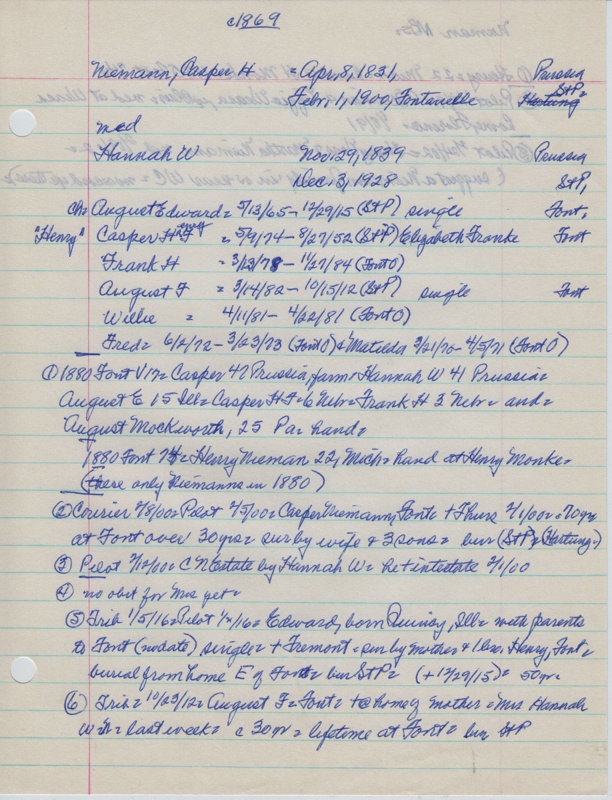 c1869
Niemann, Casper H = Apr, 8, 1831, Prussia
Febr 1, 1900, Fontanelle StP=
Hartung
med
Hannah W Nov 29, 1839 Prussia
Dec. 3, 1928 St P,
ch= August Edward = 5/13/65 - 12/29/15 (StP) single Font,
"Henry" Casper H = 5/9/74 - 8/27/52 (StP) Elizabeth Franke Font
Frank H = 3/23/78 - 11/27/84 (Font O)
August F = 3/14/82 - 10/15/12 (StP) single Font
Willie = 4/11/81 - 4/22/81 (Font O)
Fred = 6/2/72 - 3/23/73 (Font O) & Matilda 3/21/70 - 4/5/71 (Font O)
① 1880 Font V17= Casper 47 Prussia, farm + Hannah W 41 Prussia=
August E 15 Ill= Casper H F= 6 Nebr= Frank H 3 Nebr= and=
August Mockworth, 25 Pa= hand=
1880 Font = Henry Nieman 22, Mich= hand at Henry Monke=
(these only Niemanns in 1880)
② Courier 2/8/00= Pilot 2/5/00= Casper Niemann, Font= + Thurs 2/1/00= =70yr
at Font over 30yrs= sur by wife & 3 sons= bur (StP) (Hartung=)
③ Pilot 2/12/00= C N Estate by Hannah W= he + intestate 2/1/00
④ no obit for Mrs yet=
⑤ Trib 1/5/16= Pilot = Edward, born Quincy, Ill= with parents
to Font (no date) single= + Fremont= sur by mother & 1 bro. Henry, Font=
burial from home E of Font= bur StP= (+ 12/29/15)= 50yr=
⑥ Trib= 10/23/12= August F= Font= + @ home of mother= Mrs Hannah
W N= last week= c 30yr= lifetime at Font= bur StP